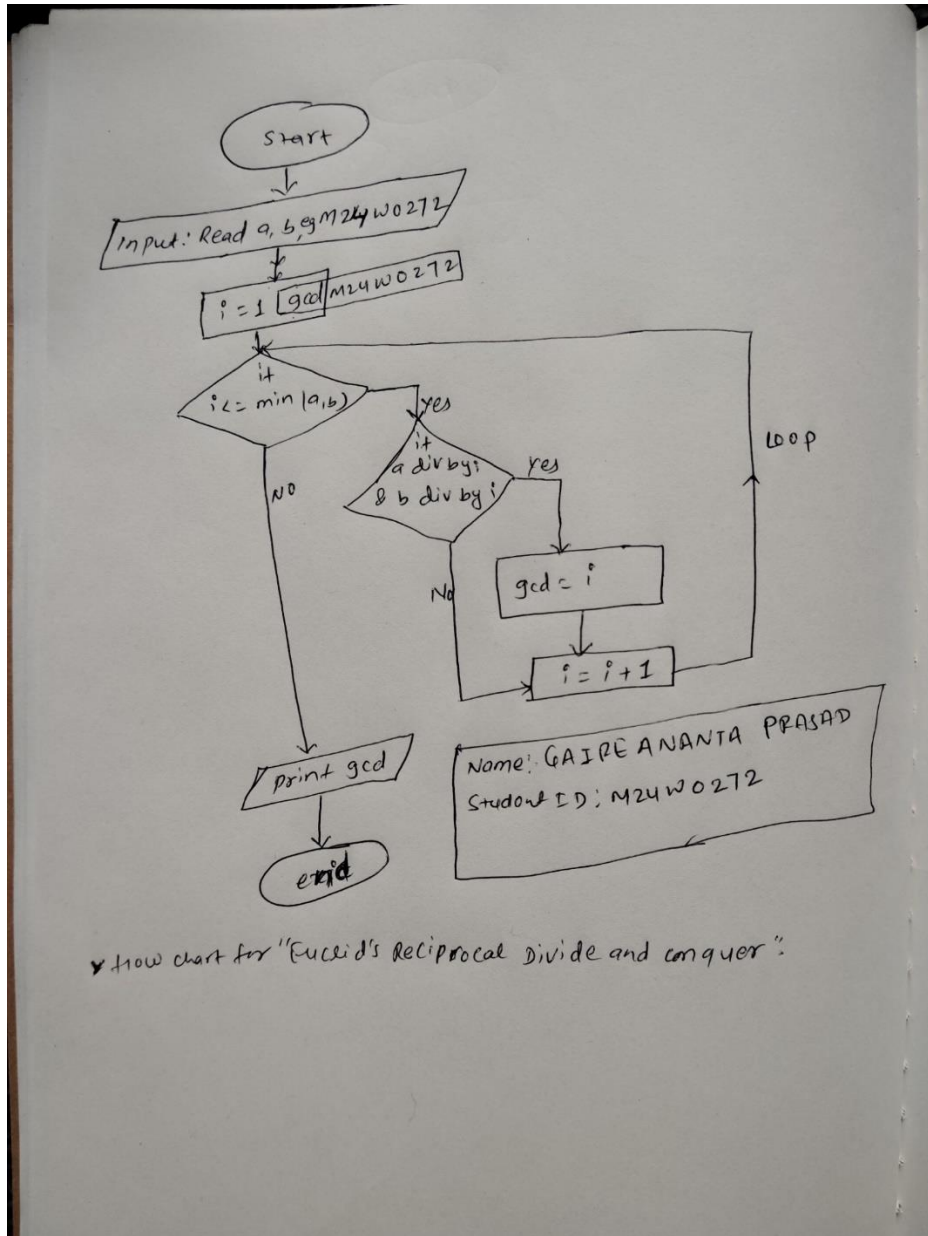 Start
Input: Read a, b, eg M24W0272
i = 1 gcd M24W0272
if
i <= min (a,b)
Yes
if
a div by i
& b div by i
Yes
LOOP
NO
No
gcd = i
i = i + 1
print gcd
end
Name: GAIRE ANANTA PRASAD
Student ID: M24W0272
Flow chart for "Euclid's Reciprocal Divide and conquer":